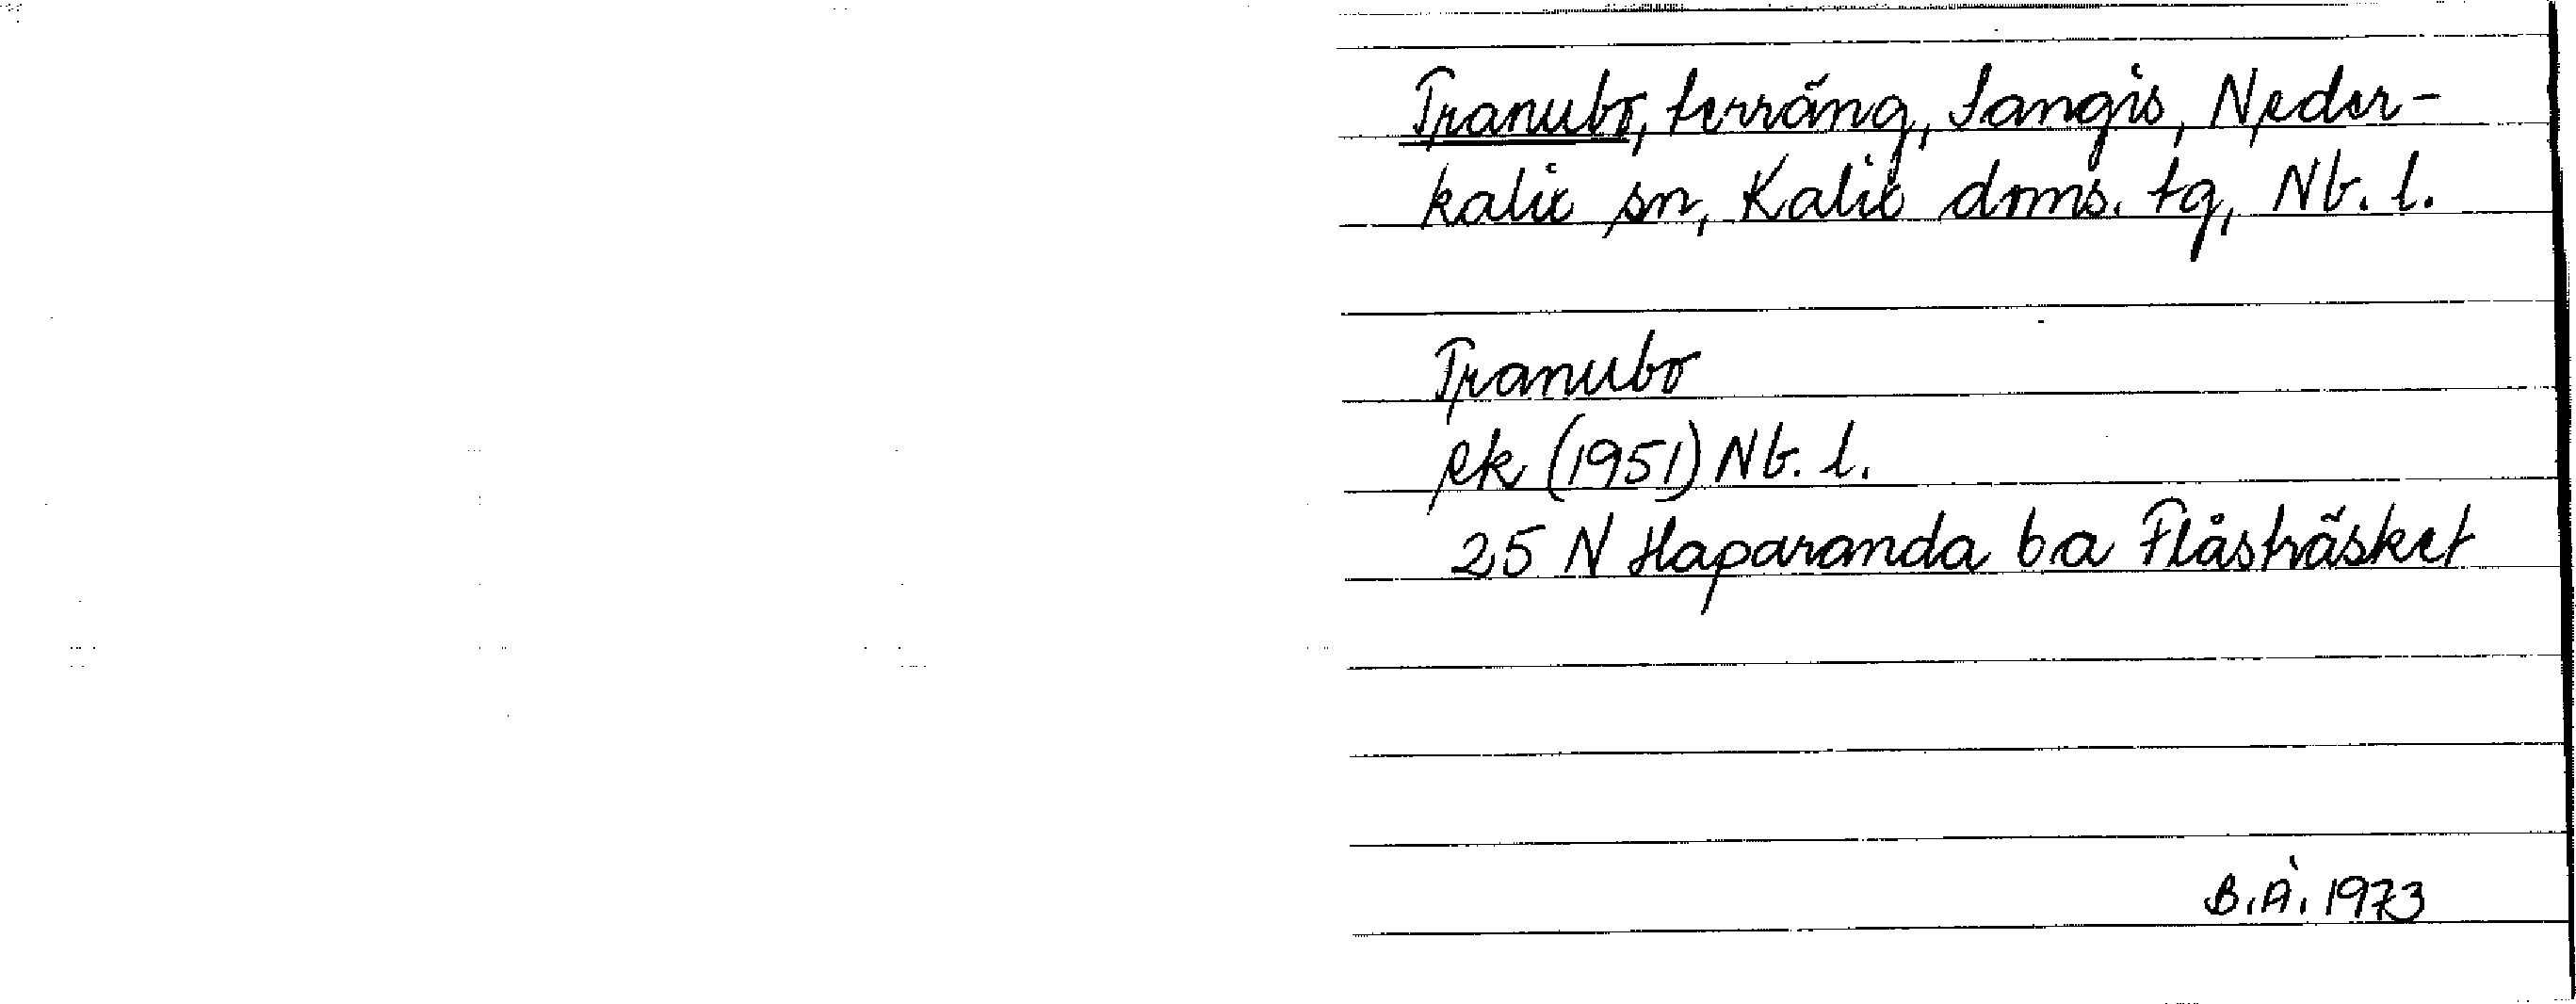 Tranubo, terräng, Sangis, Neder-
kalix sn, Kalix doms. tg, Nb. l.
Tranubo
Rk (1951) Nb. l.
25 N Haparanda ba Flåsträsket
B.Å. 1973